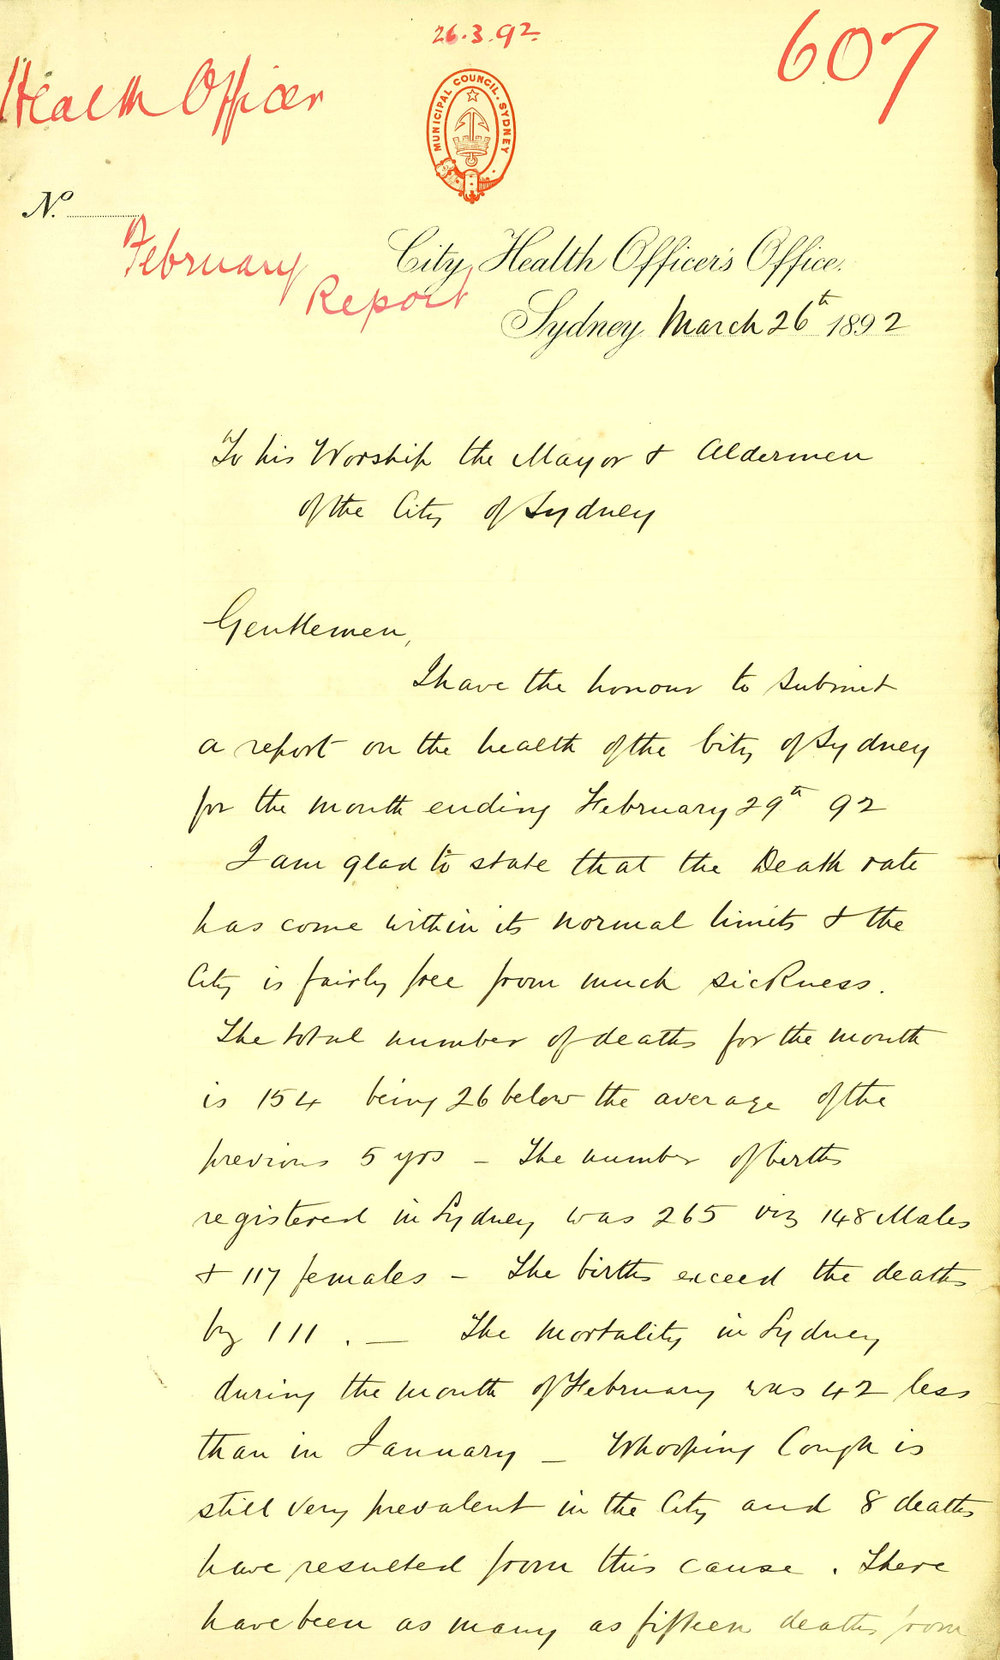 26.3.92.
607
Health Officer
MUNICIPAL COUNCIL. SYDNEY
No.
February
Report
City Health Officer's Office.
Sydney March 26th 1892
To his Worship the Mayor & Aldermen
of the City of Sydney
Gentlemen,
I have the honour to submit
a report on the health of the City of Sydney
for the month ending February 29th 92
I am glad to state that the Death rate
has come within its normal limits & the
City is fairly free from much sickness.
The total number of deaths for the month
is 154 being 26 below the average of the
previous 5 yrs – The number of births
registered in Sydney was 265 viz 148 Males
& 117 females – The births exceed the deaths
by 111 . — The mortality in Sydney
during the month of February was 42 less
than in January – Whooping Cough is
still very prevalent in the City and 8 deaths
have resulted from this cause . There
have been as many as fifteen deaths from